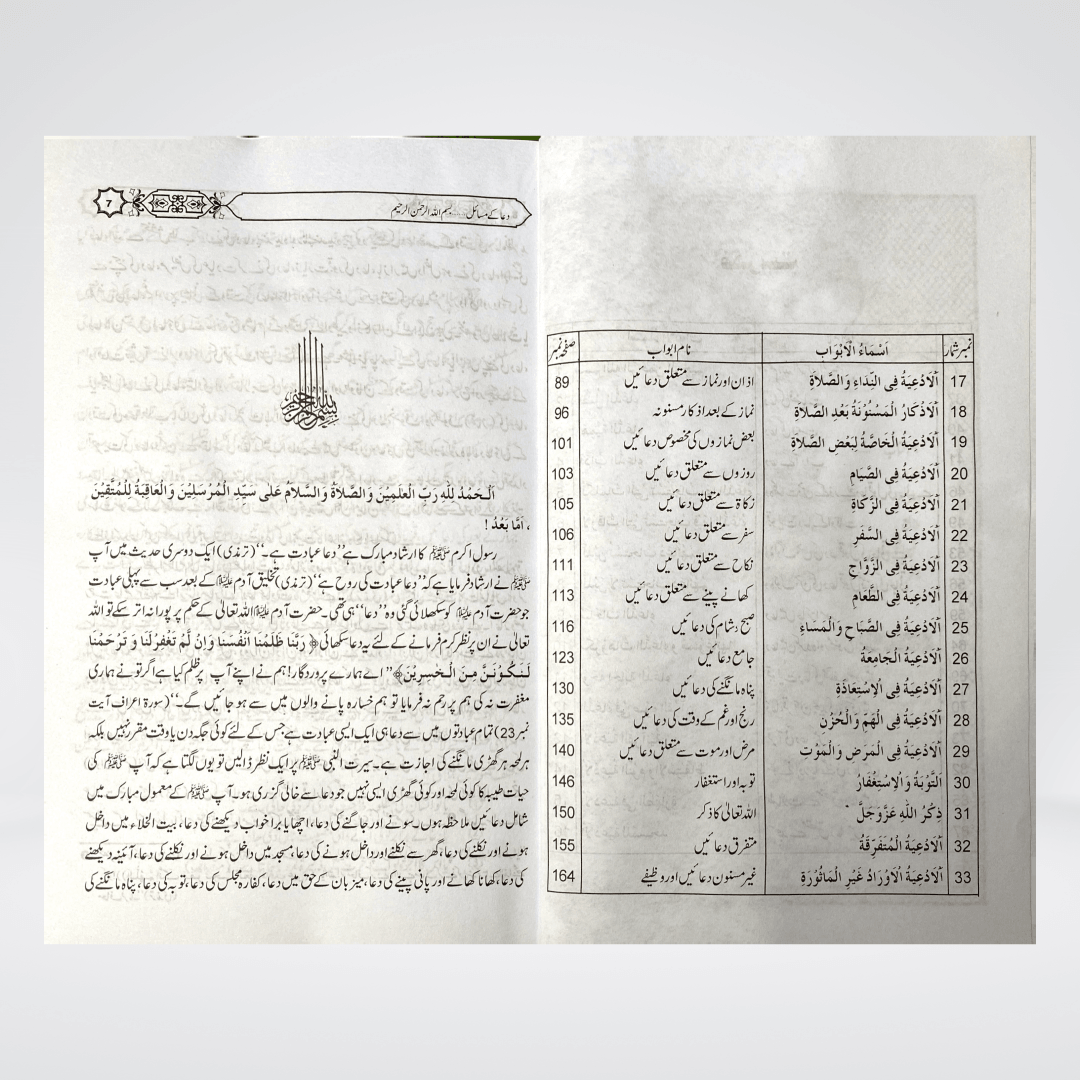 نمبر شمار اَسْمَاءُ الْاَبْوَابِ نام ابواب صفحہ نمبر
17 اَلْاَدْعِيَةُ فِى النِّدَاءِ وَالصَّلاَةِ اذان اور نماز سے متعلق دعائیں 89
18 اَلْاَذْكَارُ الْمَسْنُوْنَةُ بَعْدِ الصَّلاَةِ نماز کے بعد اذکار مسنونہ 96
19 اَلْاَدْعِيَةُ الْخَاصَّةُ لِبَعْضِ الصَّلاَةِ بعض نمازوں کی مخصوص دعائیں 101
20 اَلْاَدْعِيَةُ فِى الصِّيَامِ روزوں سے متعلق دعائیں 103
21 اَلْاَدْعِيَةُ فِى الزَّكَاةِ زکاۃ سے متعلق دعائیں 105
22 اَلْاَدْعِيَةُ فِى السَّفَرِ سفر سے متعلق دعائیں 106
23 اَلْاَدْعِيَةُ فِى الزَّوَّاجِ نکاح سے متعلق دعائیں 111
24 اَلْاَدْعِيَةُ فِى الطَّعَامِ کھانے پینے سے متعلق دعائیں 113
25 اَلْاَدْعِيَةُ فِى الصَّبَاحِ وَالْمَسَاءِ صبح و شام کی دعائیں 116
26 اَلْاَدْعِيَةُ الْجَامِعَةُ جامع دعائیں 123
27 اَلْاَدْعِيَةُ فِى الْاِسْتِعَاذَةِ پناہ مانگنے کی دعائیں 130
28 اَلْاَدْعِيَةُ فِى الْهَمِّ وَالْحُزْنِ رنج اور غم کے وقت کی دعائیں 135
29 اَلْاَدْعِيَةُ فِى الْمَرَضِ وَالْمَوْتِ مرض اور موت سے متعلق دعائیں 140
30 اَلتَّوْبَةُ وَالْاِسْتِغْفَارُ توبہ اور استغفار 146
31 ذِكْرُ اللّٰهِ عَزَّوَجَلَّ اللہ تعالیٰ کا ذکر 150
32 اَلْاَدْعِيَةُ الْمُتَفَرِّقَةُ متفرق دعائیں 155
33 اَلْاَدْعِيَةُ الْاَوْرَادُ غَيْرِ الْمَاثُوْرَةِ غیر مسنون دعائیں اور وظیفے 164
دعا کے مسائل ..... بسم اللہ الرحمٰن الرحیم 7
بسم الله الرحمن الرحيم
اَلْحَمْدُ لِلّٰهِ رَبِّ الْعٰلَمِيْنَ وَالصَّلاَةُ وَالسَّلاَمُ عَلٰى سَيِّدِ الْمُرْسَلِيْنَ وَالْعَاقِبَةُ لِلْمُتَّقِيْنَ
، اَمَّا بَعْدُ !
رسول اکرم ﷺ کا ارشاد مبارک ہے ’’دعا عبادت ہے۔‘‘ (ترمذی) ایک دوسری حدیث میں آپ
ﷺ نے ارشاد فرمایا ہے کہ ’’دعا عبادت کی روح ہے‘‘ (ترمذی) تخلیق آدم علیہ السلام کے بعد سب سے پہلی عبادت
جو حضرت آدم علیہ السلام کو سکھلائی گئی وہ ’’دعا‘‘ ہی تھی۔ حضرت آدم علیہ السلام اللہ تعالیٰ کے حکم پر پورا نہ اتر سکے تو اللہ
تعالیٰ نے ان پر نظر کرم فرمانے کے لئے یہ دعا سکھائی ﴿ رَبَّنَا ظَلَمْنَا اَنْفُسَنَا وَاِنْ لَّمْ تَغْفِرْلَنَا وَ تَرْحَمْنَا
لَنَكُوْنَنَّ مِنَ الْخٰسِرِيْنَ﴾ ’’اے ہمارے پروردگار! ہم نے اپنے آپ پر ظلم کیا ہے اگر تو نے ہماری
مغفرت نہ کی ہم پر رحم نہ فرمایا تو ہم خسارہ پانے والوں میں سے ہو جائیں گے۔‘‘ (سورۃ اعراف آیت
نمبر 23) تمام عبادتوں میں سے دعا ہی ایک ایسی عبادت ہے جس کے لئے کوئی جگہ دن یا وقت مقرر نہیں بلکہ
ہر لمحہ ہر گھڑی مانگنے کی اجازت ہے۔ سیرت النبی ﷺ پر ایک نظر ڈالیں تو یوں لگتا ہے کہ آپ ﷺ کی
حیات طیبہ کا کوئی لمحہ اور کوئی گھڑی ایسی نہیں جو دعا سے خالی گزری ہو۔ آپ ﷺ کے معمول مبارک میں
شامل دعائیں ملاحظہ ہوں۔ سونے اور جاگنے کی دعا، اچھا یا برا خواب دیکھنے کی دعا، بیت الخلاء میں داخل
ہونے اور نکلنے کی دعا، گھر سے نکلنے اور داخل ہونے کی دعا، مسجد میں داخل ہونے اور نکلنے کی دعا، آئینہ دیکھنے
کی دعا، کھانا کھانے اور پانی پینے کی دعا، میزبان کے حق میں دعا، کفارہ مجلس کی دعا، توبہ کی دعا، پناہ مانگنے کی